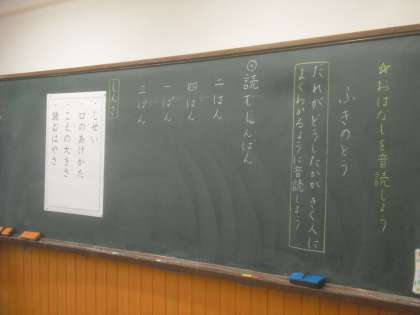 ☆おはなしを音読しよう
ふきのとう
だれがどうしたかがきく人に
よくわかるように音読しよう
◎読むじゅんばん
二はん
四はん
一はん
三はん
しんさ
・しせい
・口のあけかた
・こえの大きさ
・読むはやさ